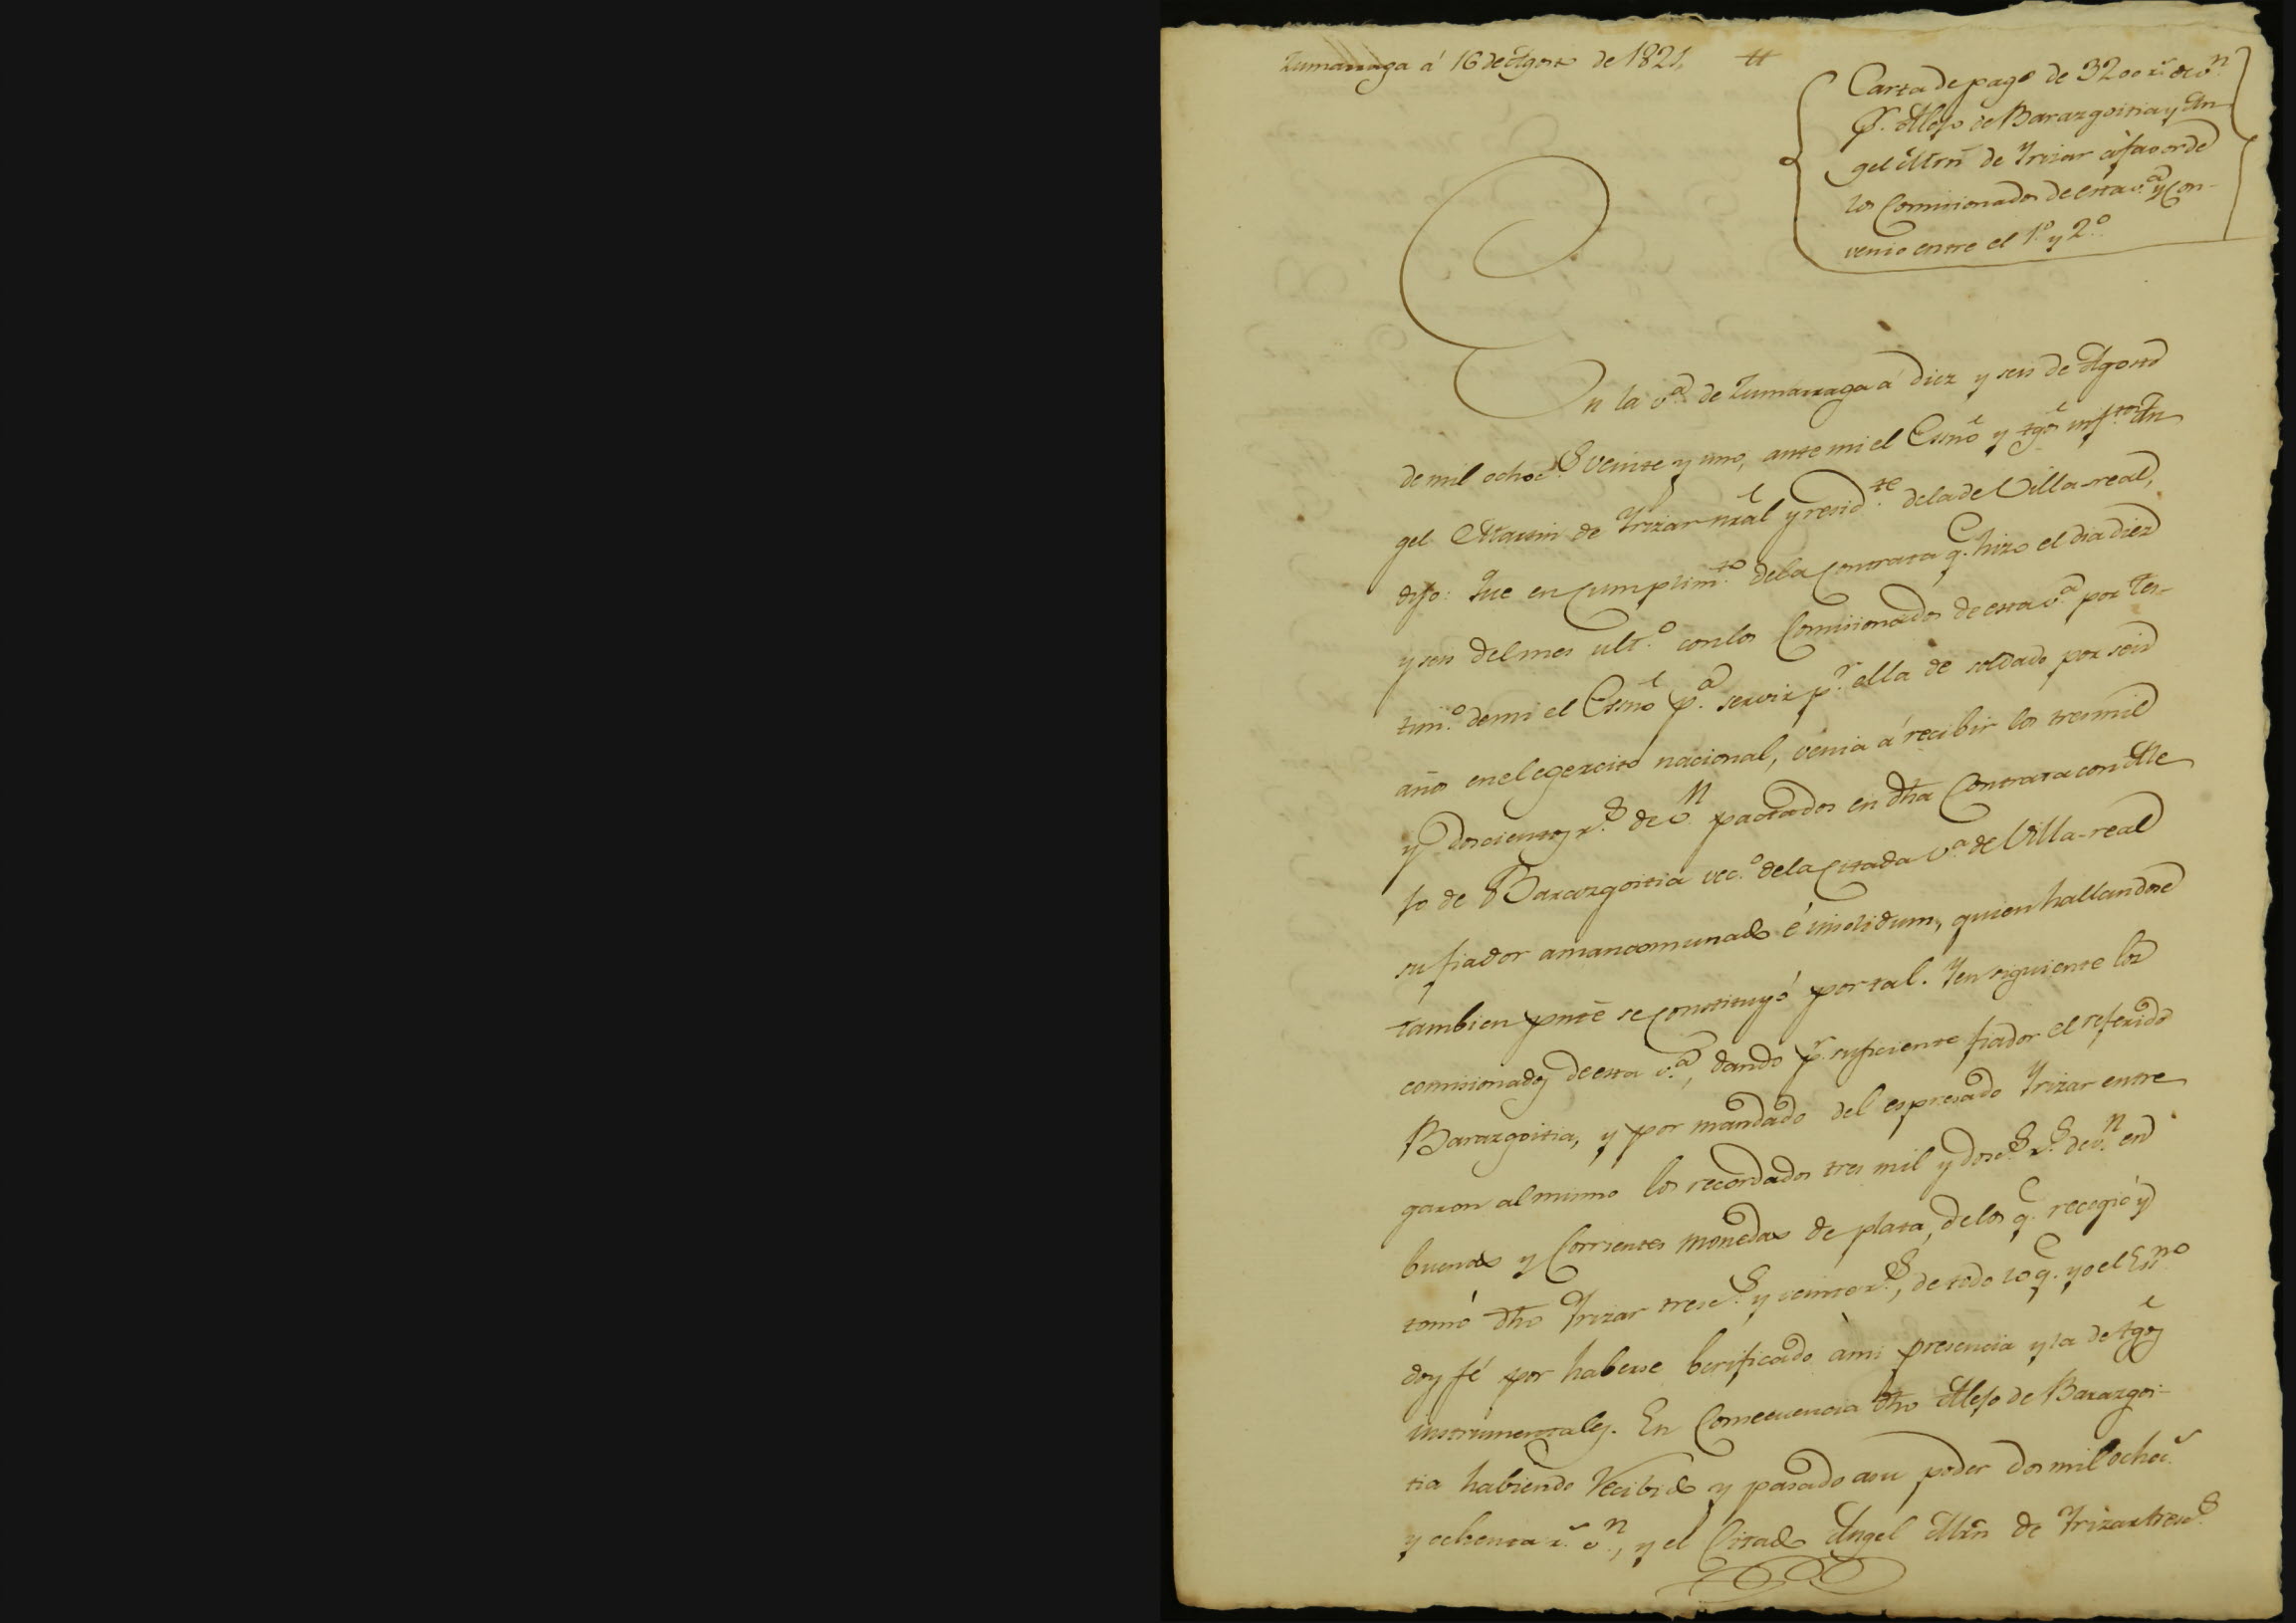 Zumarraga á 16 de Agosto de 1821. #
Carta de pago de 3200 r.s de v.n
p.r Alejo de Barazgoitia y An-
gel Mrn de Yrizar á favor de
los Comisionados de esta v.a y Con-
venio entre el 1.o y 2.o
En la v.a de Zumarraga á diez y seis de Agosto
de mil ochoc.s veinte y uno, ante mi el Essno y tgos infros An
gel Martin de Yrizar nral y resid.te de la de Villa-real,
dijo: Que en cumplim.to de la Contrata q.e hizo el dia diez
y seis del mes ult.o con los Comisionados de esta v.a por tes-
tim.o de mi el Essno p.a servir p.r ella de soldado por seis
años en el egercito nacional, venia á recibir los tres mil
y doscientos r.s de v.n pactados en dha Contrata con Ale
jo de Barazgoitia vec.o de la Citada v.a de Villa-real
su fiador amancomunado é insolidum, quien hallandose
tambien pnte se constituyó por tal. Y en siguiente los
comisionados de esta v.a, dando p.r suficiente fiador el referido
Barazgoitia, y por mandado del espresado Yrizar entre
garon al mismo los recordados tres mil y dosc.s r.s de v.n en
buenas y Corrientes monedas de plata, de los q.e recogió y
tomó dho Yrizar tresc.s y veinte r.s, de todo lo q.e yo el Esno
doy fé por haberse berificado á mi presencia y la de tgos
instrumentales. En Consecuencia dho Alejo de Barazgoi-
tia habiendo recibido y pasado a su poder dos mil ochoc.s
y ochenta r.s v.n, y el Citado Angel Mrn de Yrizar tresc.s